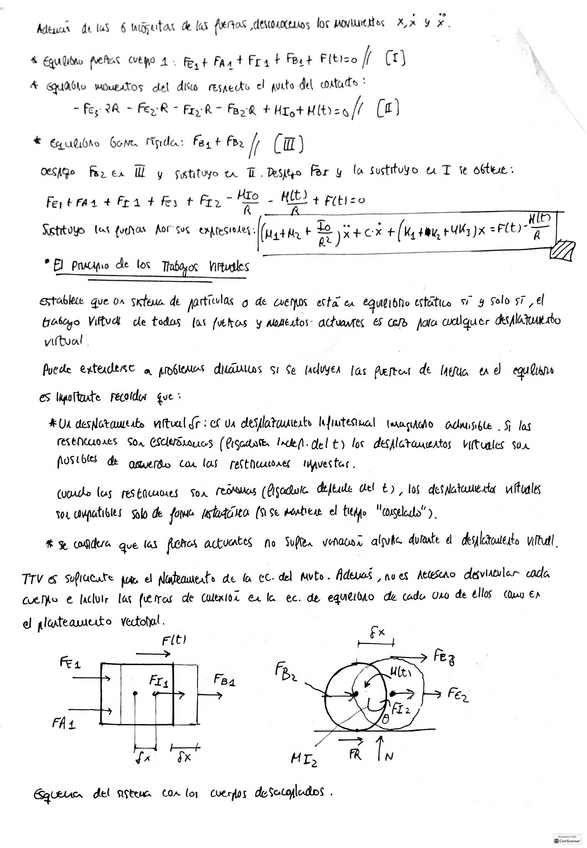 Además de las 6 incógnitas de las fuerzas, desconocemos los movimientos x, ẋ y ẍ.
* Equilibrio fuerzas cuerpo 1: FE1 + FA1 + FI1 + FB1 + F(t)=0 // [I]
* Equilibrio momentos del disco respecto el punto del contacto:
- FE3·2R - FE2·R - FI2·R - FB2·R + MI0 + M(t)=0 // [II]
* Equilibrio barra rígida: FB1 + FB2 // [III]
Despejo FB2 en III y sustituyo en II. Despejo FB1 y la sustituyo en I se obtiene:
FE1 + FA1 + FI1 + FE3 + FI2 - MI0/R - M(t)/R + F(t)=0
Sustituyo las fuerzas por sus expresiones: (M1+M2 + I0/R²)ẍ + C·ẋ + (K1+K2+4K3)x = F(t) - M(t)/R
• El Principio de los Trabajos Virtuales
Establece que un sistema de partículas o de cuerpos está en equilibrio estático si y solo si, el
trabajo virtual de todas las fuerzas y momentos actuantes es cero para cualquier desplazamiento
virtual.
Puede extenderse a problemas dinámicos si se incluyen las fuerzas de inercia en el equilibrio
es importante recordar que:
* Un desplazamiento virtual δr: es un desplazamiento infinitesimal imaginario admisible. Si las
restricciones son esclerónomas (ligadura indep. del t) los desplazamientos virtuales son
posibles de acuerdo con las restricciones impuestas.
cuando las restricciones son reónomas (ligadura depende del t), los desplazamientos virtuales
son compatibles solo de forma instantánea (si se mantiene el tiempo "congelado").
* Se considera que las fuerzas actuantes no sufren variación alguna durante el desplazamiento virtual.
TTV es suficiente para el planteamiento de la ec. del mvto. Además, no es necesario desvincular cada
cuerpo e incluir las fuerzas de conexión en la ec. de equilibrio de cada uno de ellos como en
el planteamiento vectorial.
F(t)
FE1
FI1
FB1
FA1
δx
δx
δx
FE3
FB2
M(t)
FE2
FI2
θ
MI2
FR
N
Esquema del sistema con los cuerpos desacoplados.
Scanned with
CamScanner